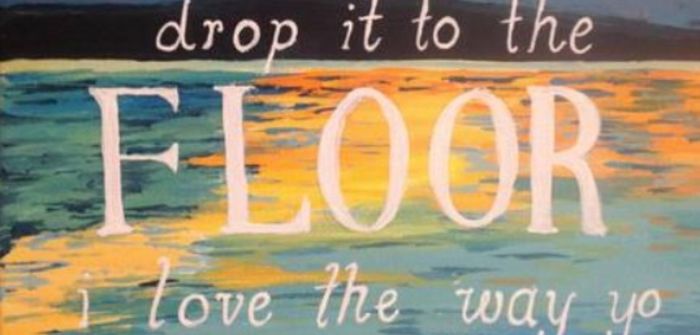 drop it to the
FLOOR
i love the way yo